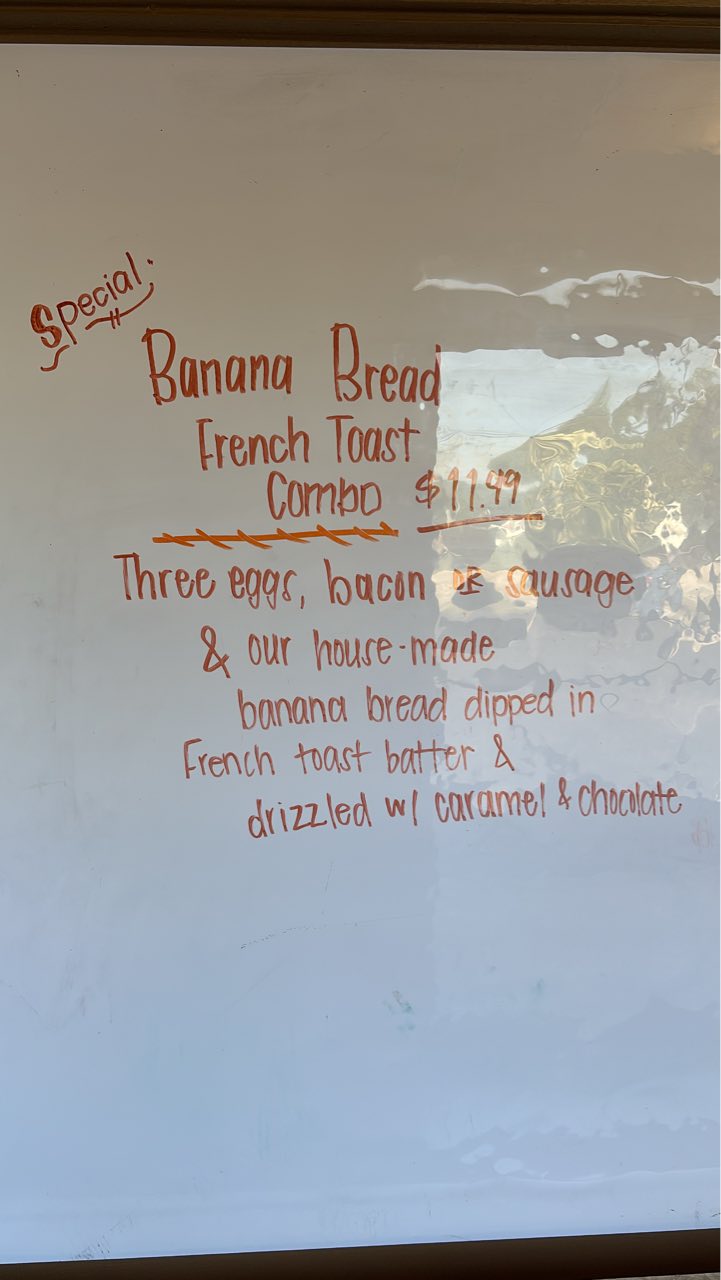 Special.
Banana Bread
French Toast
Combo $11.49
Three eggs, bacon or sausage
& our house-made
banana bread dipped in
French toast batter &
drizzled w/ caramel & chocolate